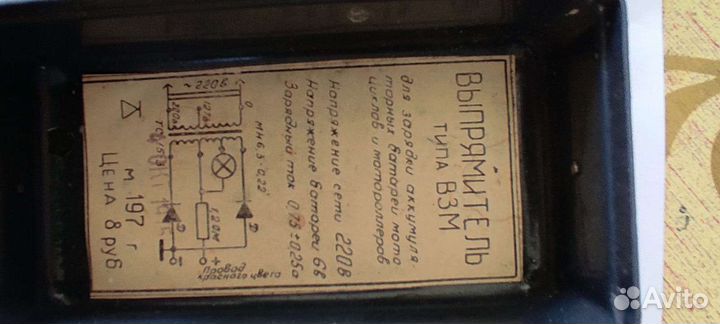 ВЫПРЯМИТЕЛЬ
типа ВЗМ
для зарядки аккумуля-
торных батарей мото
циклов и мотороллеров
Напряжение сети 220в
Напряжение батареи 6в
Зарядный ток 0,75±0,25а
~220в
0
127в
220в
МН 6,3·0,22
Д
Д
1,2 Ом
+
−
Провод
красного цвета
М 197 г
ЦЕНА 8 руб
Avito